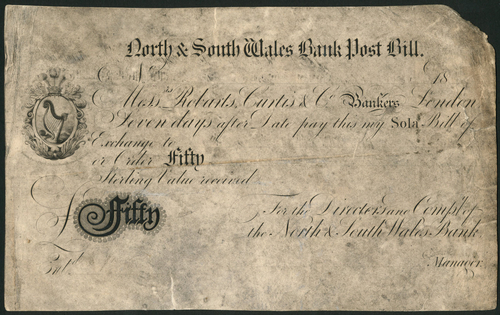 North & South Wales Bank Post Bill.
£ 18
Mess.rs Robarts, Curtis & Co. Bankers London
Seven days after Date pay this my Sola Bill of
Exchange to
or Order Fifty
Sterling Value received
£ Fifty
For the Directors and Comp.y of
the North & South Wales Bank
Ent.d
Manager.